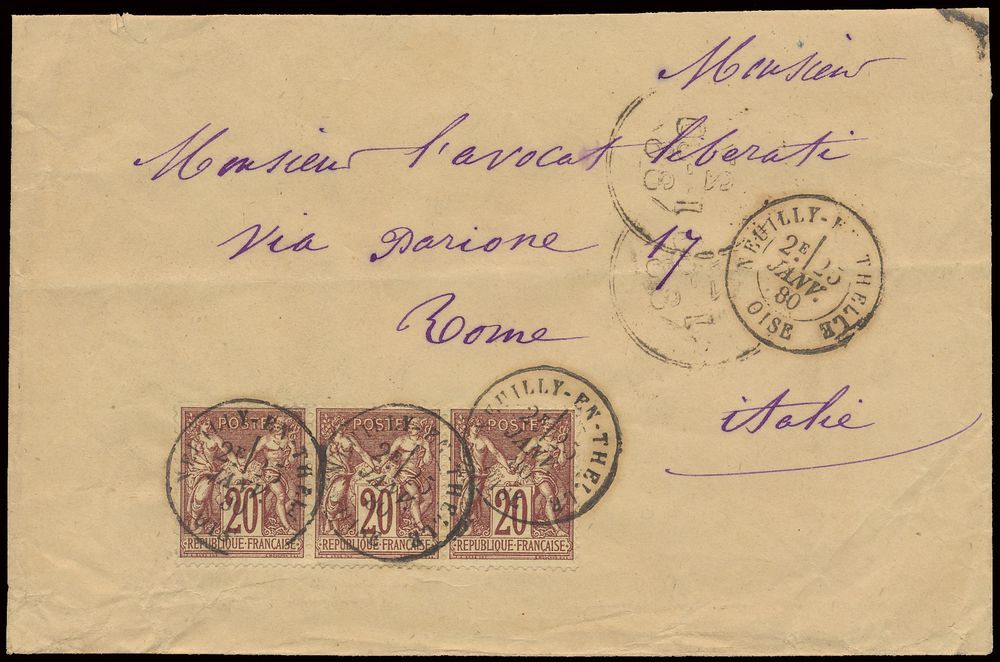 Monsieur
Monsieur l'avocat liberati
Via Darione 17
Rome
italie
NEUILLY-EN THELLE
2E/25
JANV.
80
OISE
POSTE
20
REPUBLIQUE-FRANCAISE
POSTE
20
REPUBLIQUE-FRANCAISE
POSTE
20
REPUBLIQUE-FRANCAISE
NEUILLY-EN-THELLE